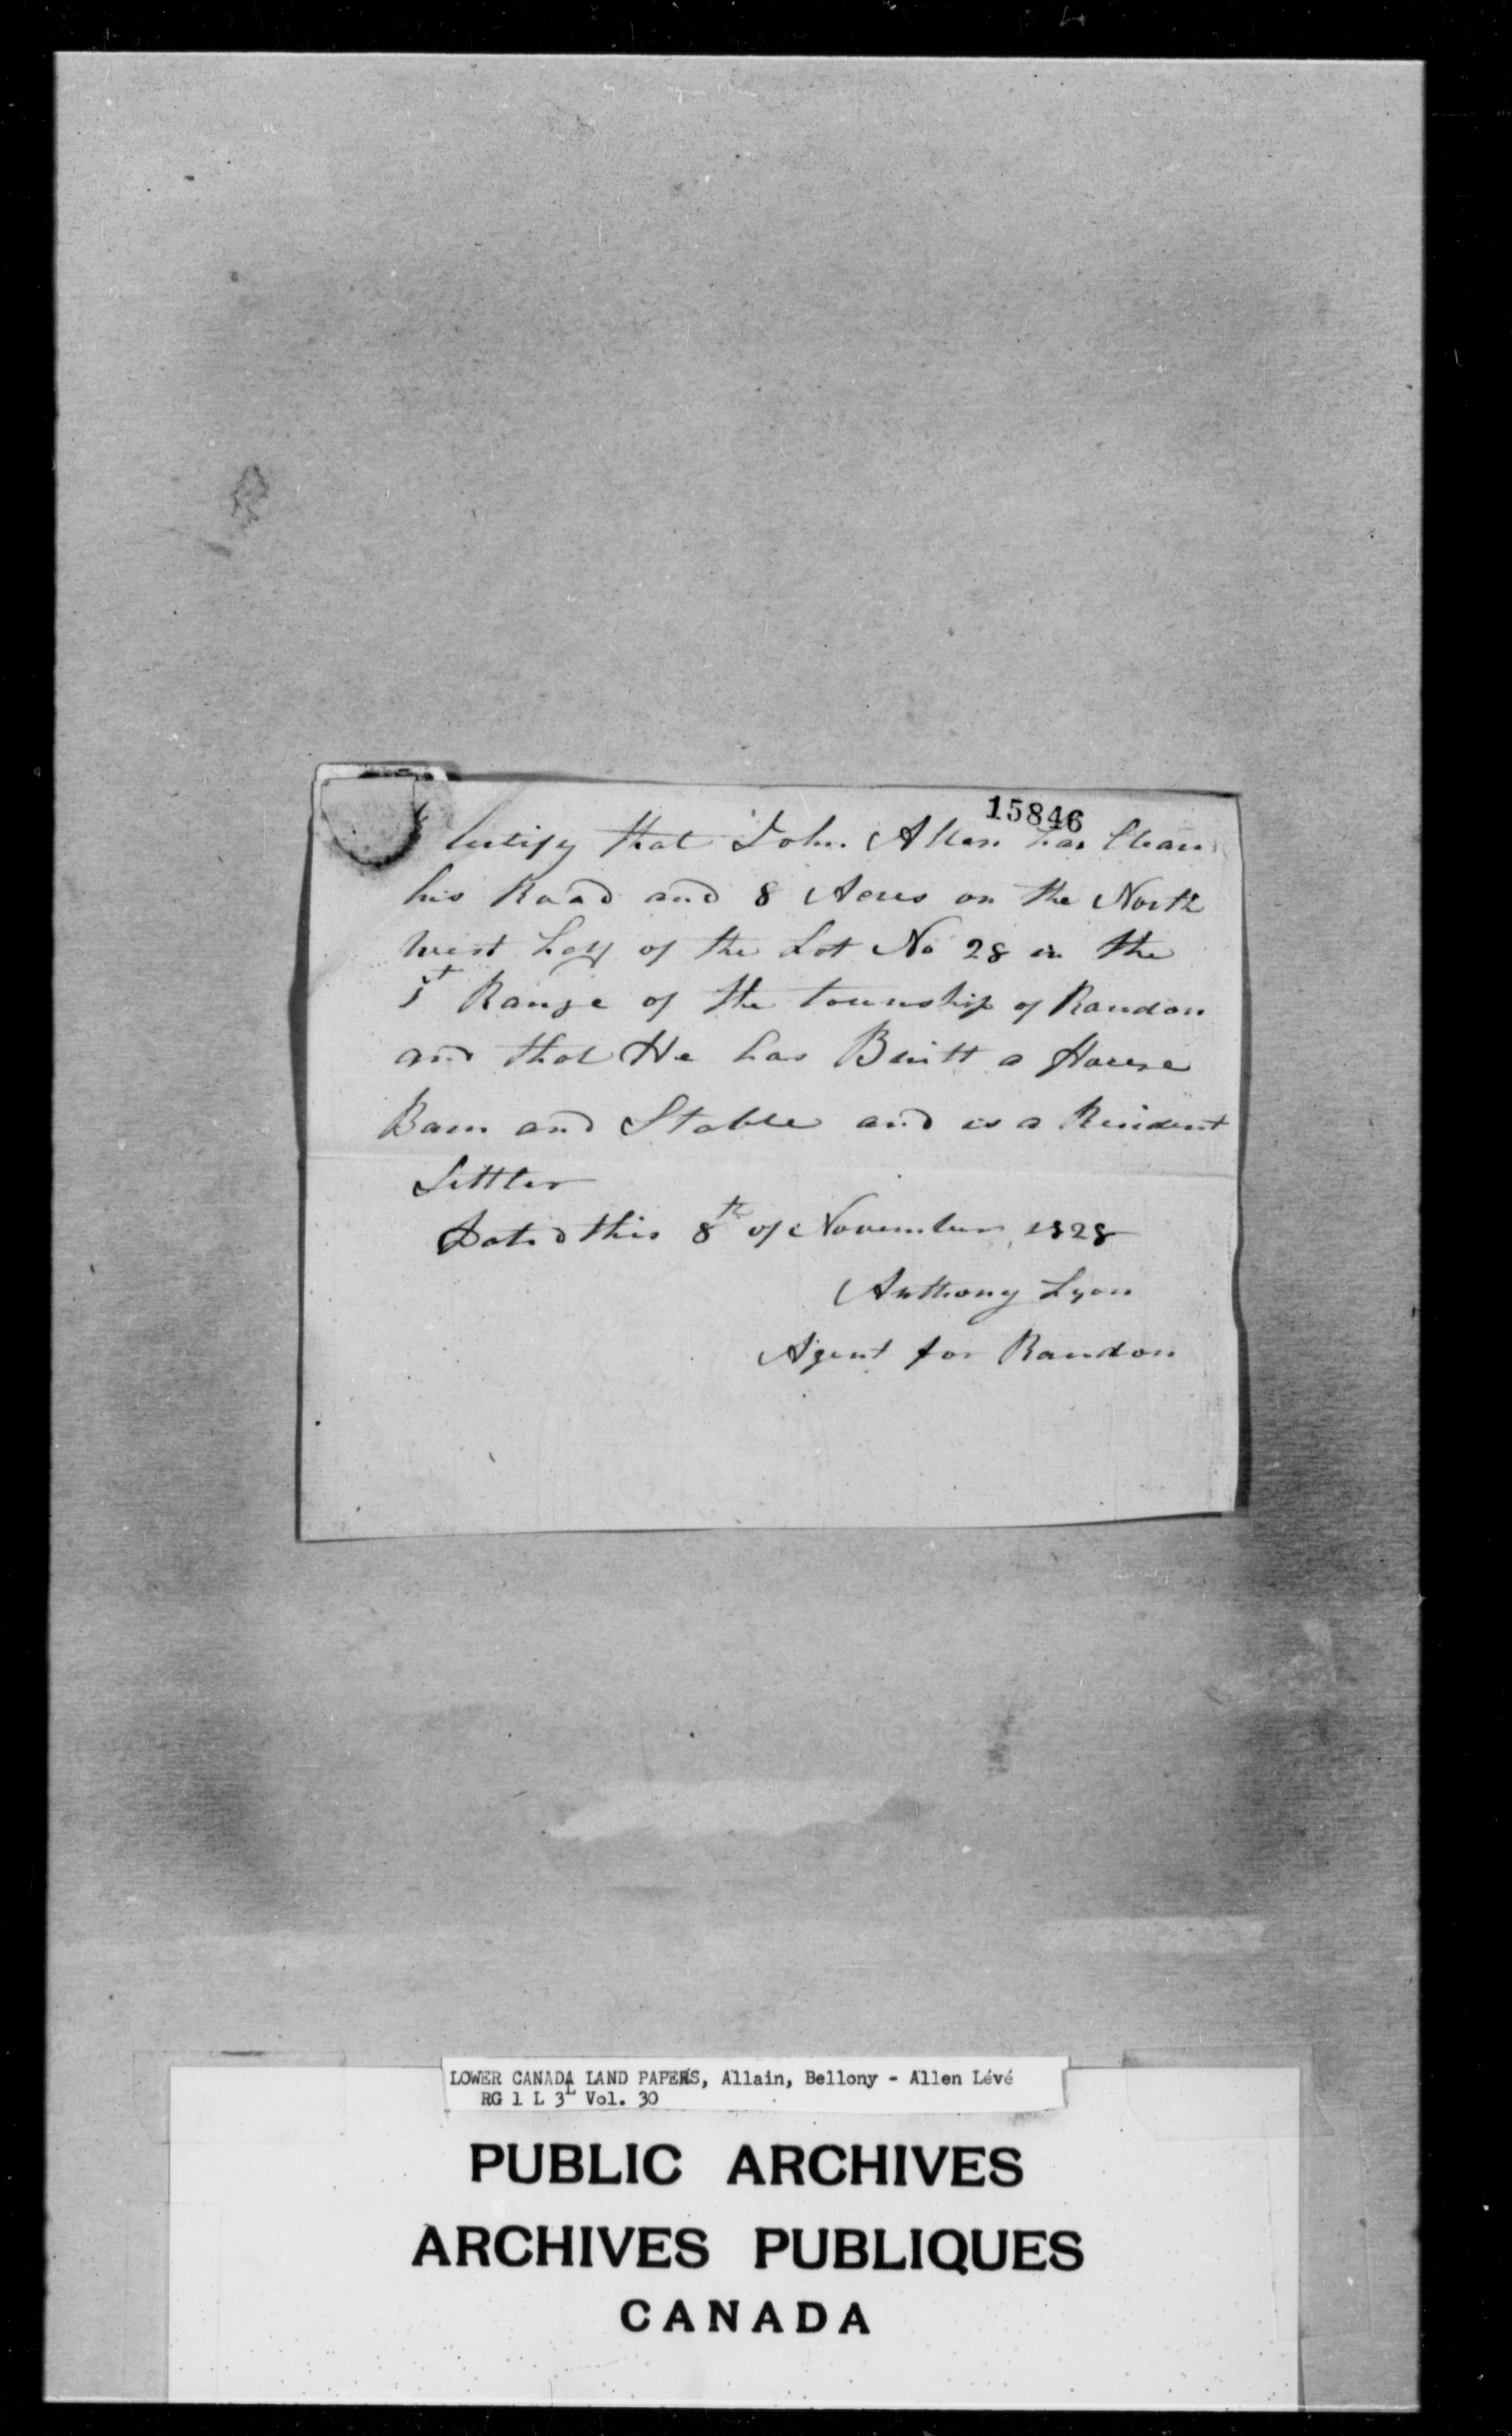 15846
Certify that John Allen has Clear
his Road and 8 Acres on the North
West half of the Lot No 28 in the
1st Range of the township of Rawdon
and that He has Built a House
Barn and Stable and is a Resident
Settler
Dated this 8th of November 1828
Anthony Lyon
Agent for Rawdon
LOWER CANADA LAND PAPERS, Allain, Bellony - Allen Lévé
RG 1 L 3L Vol. 30
PUBLIC ARCHIVES
ARCHIVES PUBLIQUES
CANADA